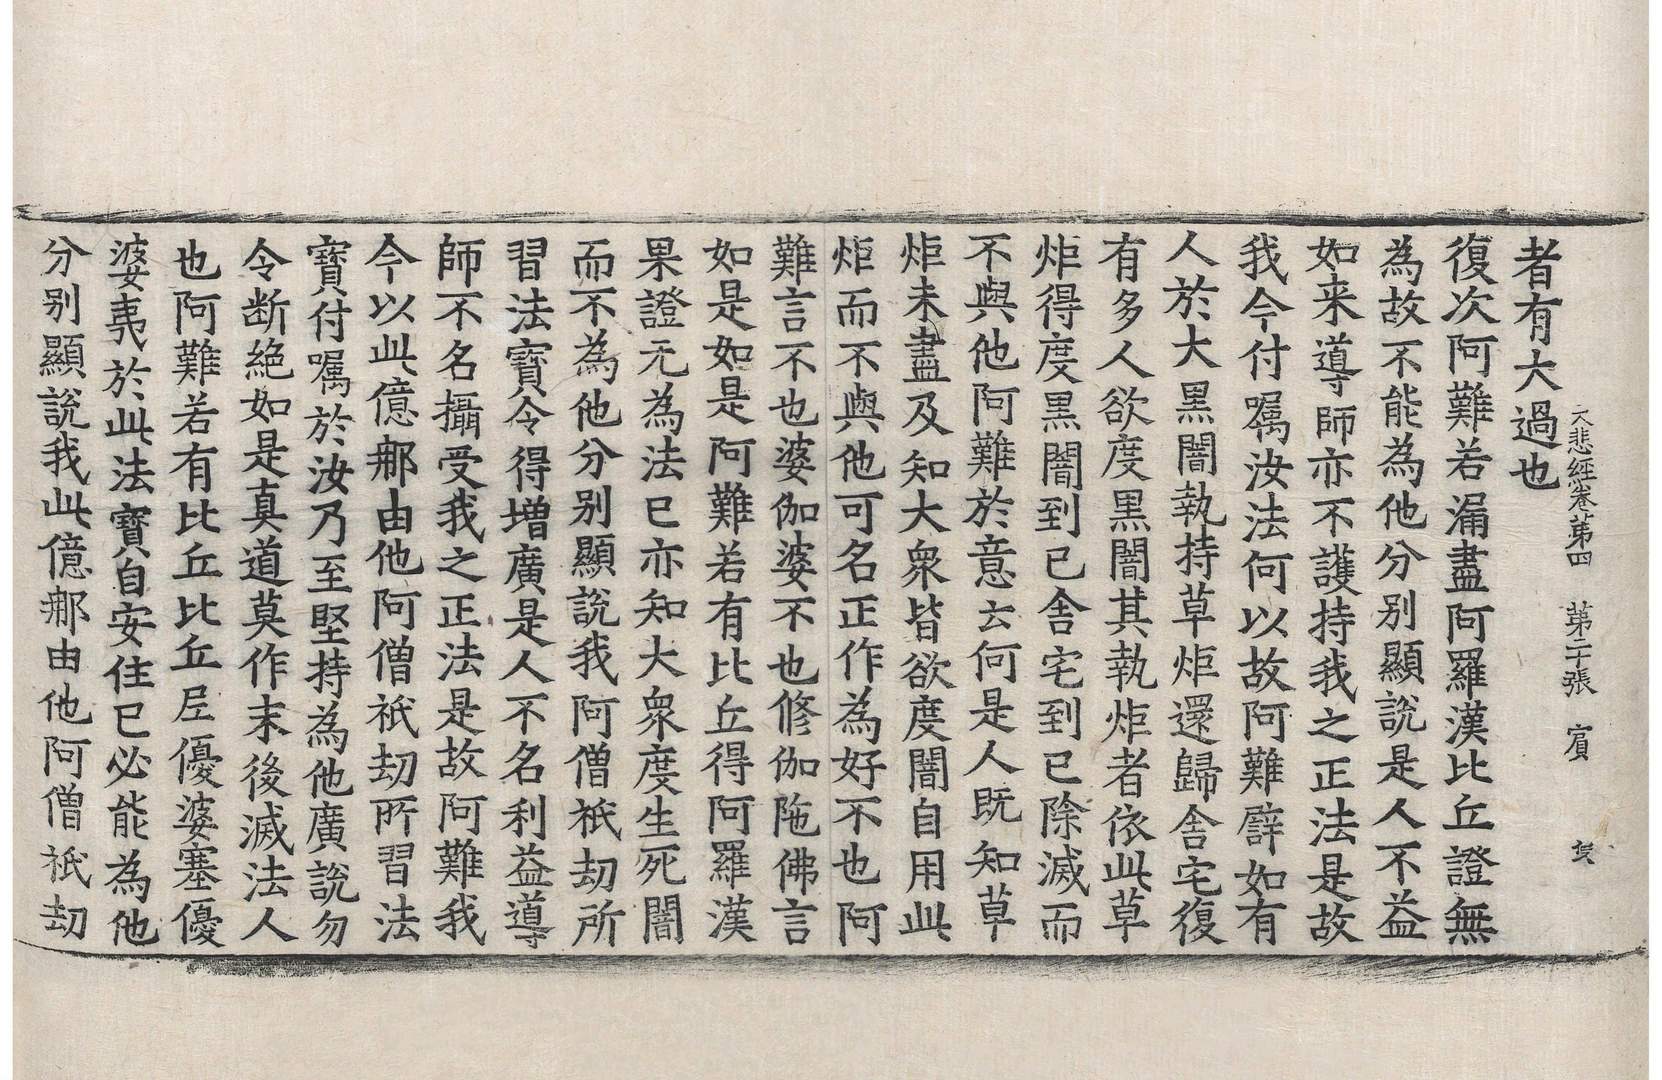 大悲經卷第四 第二十張 賓
者有大過也
復次阿難若漏盡阿羅漢比丘證無
為故不能為他分别顯說是人不益
如来導師亦不護持我之正法是故
我今付囑汝法何以故阿難譬如有
人於大黑闇執持草炬還歸舍宅復
有多人欲度黑闇其執炬者依此草
炬得度黑闇到已舍宅到已除滅而
不與他阿難於意云何是人既知草
炬未盡及知大衆皆欲度闇自用此
炬而不與他可名正作為好不也阿
難言不也婆伽婆不也修伽陁佛言
如是如是阿難若有比丘得阿羅漢
果證无為法已亦知大衆度生死闇
而不為他分别顯說我阿僧祇劫所
習法寶令得增廣是人不名利益導
師不名攝受我之正法是故阿難我
今以此億那由他阿僧祇劫所習法
寶付囑於汝乃至堅持為他廣說勿
令断絕如是真道莫作末後滅法人
也阿難若有比丘比丘尼優婆塞優
婆夷於此法寶自安住已必能為他
分别顯說我此億那由他阿僧祇劫